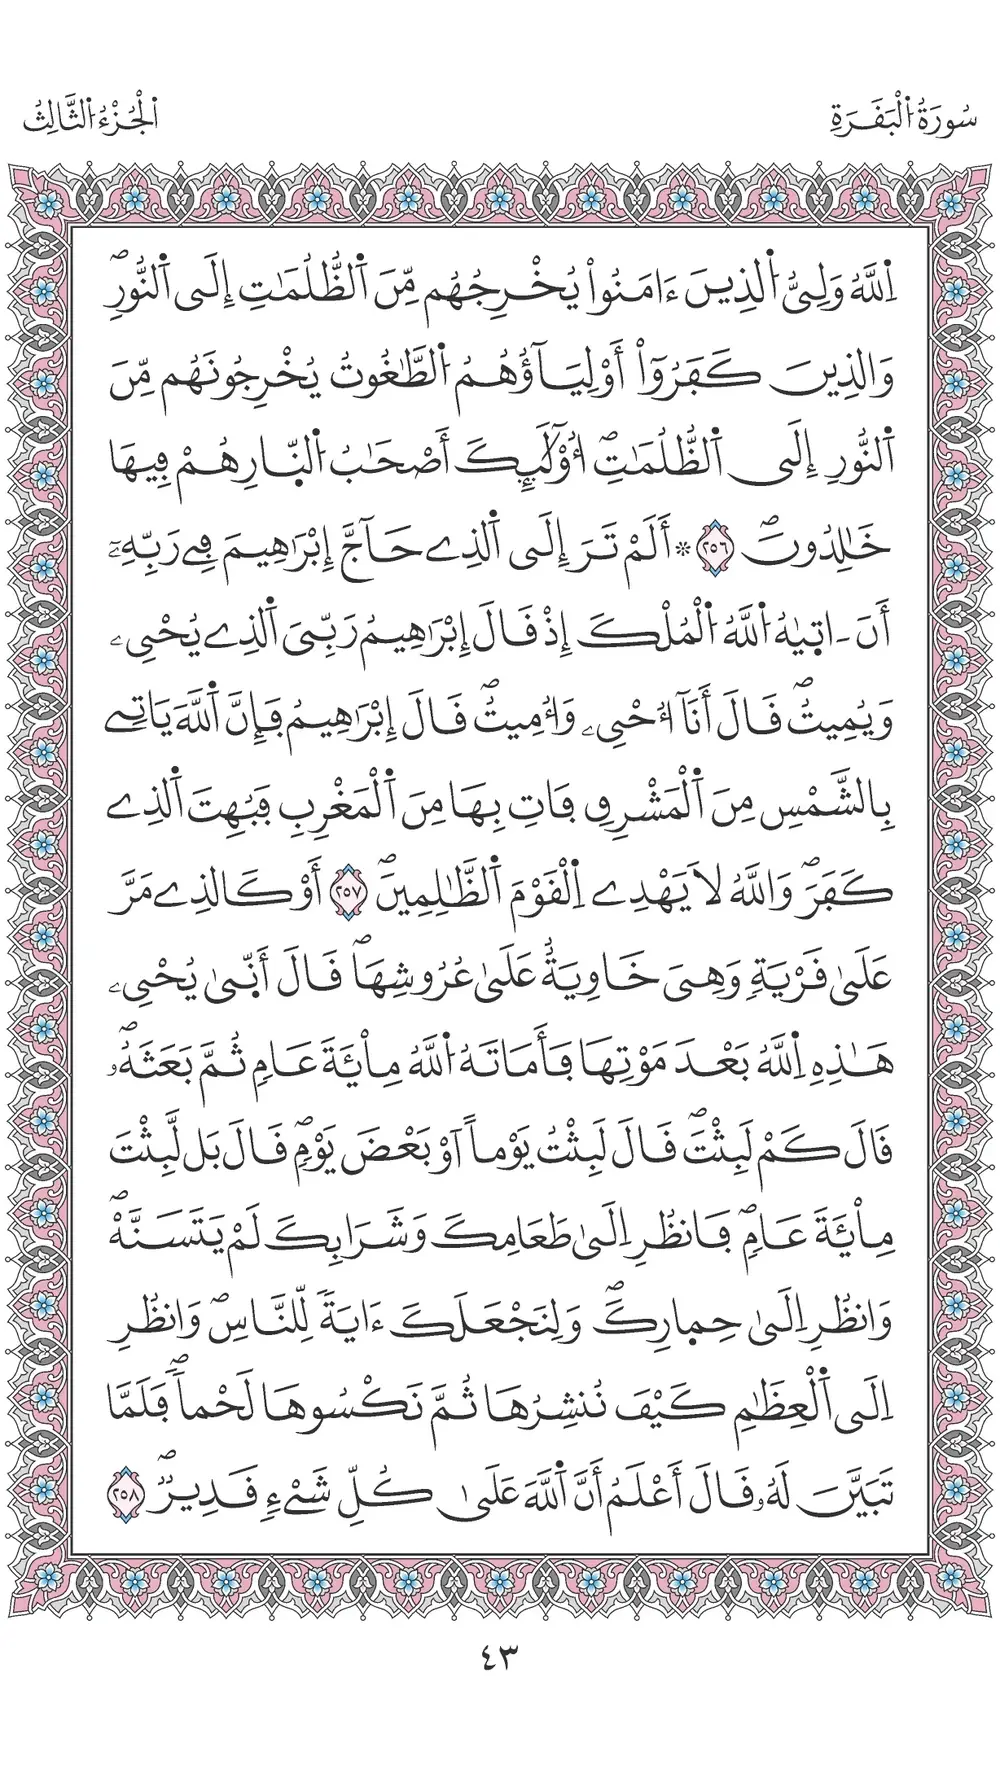 سُورَةُ اُ۬لْبَقَرَةِ
اَ۬لْجُزْءُ اُ۬لثَّالِثُ
اِ۬للَّهُ وَلِيُّ اُ۬لذِينَ ءَامَنُواْ يُخْرِجُهُم مِّنَ اَ۬لظُّلُمَٰتِ إِلَي اَ۬لنُّورِۖ
وَالذِينَ كَفَرُوٓاْ أَوْلِيَآؤُهُمُ اُ۬لطَّٰغُوتُ يُخْرِجُونَهُم مِّنَ
اَ۬لنُّورِ إِلَي اَ۬لظُّلُمَٰتِۖ أُوْلَٰٓئِكَ أَصْحَٰبُ اُ۬لنّ۪ارِ هُمْ فِيهَا
خَٰلِدُونَۖ ٢٥٦ ۞ أَلَمْ تَرَ إِلَي اَ۬لذِے حَآجَّ إِبْرَٰهِيمَ فِے رَبِّهِۦٓ
أَنَ اٰت۪يٰهُ اُ۬للَّهُ اُ۬لْمُلْكَ إِذْ قَالَ إِبْرَٰهِيمُ رَبِّيَ اَ۬لذِے يُحْيِۦ
وَيُمِيتُۖ قَالَ أَنَآ أُحْيِۦ وَأُمِيتُۖ قَالَ إِبْرَٰهِيمُ فَإِنَّ اَ۬للَّهَ يَاتِے
بِالشَّمْسِ مِنَ اَ۬لْمَشْرِقِ فَاتِ بِهَا مِنَ اَ۬لْمَغْرِبِ فَبُهِتَ اَ۬لذِے
كَفَرَۖ وَاللَّهُ لَا يَهْدِے اِ۬لْقَوْمَ اَ۬لظَّٰلِمِينَۖ ٢٥٧ أَوْ كَالذِے مَرَّ
عَلَيٰ قَرْيَةٖ وَهِيَ خَاوِيَةٌ عَلَيٰ عُرُوشِهَاۖ قَالَ أَنّ۪يٰ يُحْيِۦ
هَٰذِهِ اِ۬للَّهُ بَعْدَ مَوْتِهَا فَأَمَاتَهُ اُ۬للَّهُ مِاْئَةَ عَامٖ ثُمَّ بَعَثَهُۥۖ
قَالَ كَمْ لَبِثْتَۖ قَالَ لَبِثْتُ يَوْماً اَوْ بَعْضَ يَوْمٖۖ قَالَ بَل لَّبِثْتَ
مِاْئَةَ عَامٖۖ فَانظُرِ اِلَيٰ طَعَامِكَ وَشَرَابِكَ لَمْ يَتَسَنَّهْۖ
وَانظُرِ اِلَيٰ حِم۪ارِكَۖ وَلِنَجْعَلَكَ ءَايَةٗ لِّلنَّاسِۖ وَانظُرِ
اِلَي اَ۬لْعِظَٰمِ كَيْفَ نُنشِرُهَا ثُمَّ نَكْسُوهَا لَحْماٗۖ فَلَمَّا
تَبَيَّنَ لَهُۥ قَالَ أَعْلَمُ أَنَّ اَ۬للَّهَ عَلَيٰ كُلِّ شَےْءٖ قَدِيرٞۖ ٢٥٨
٤٣